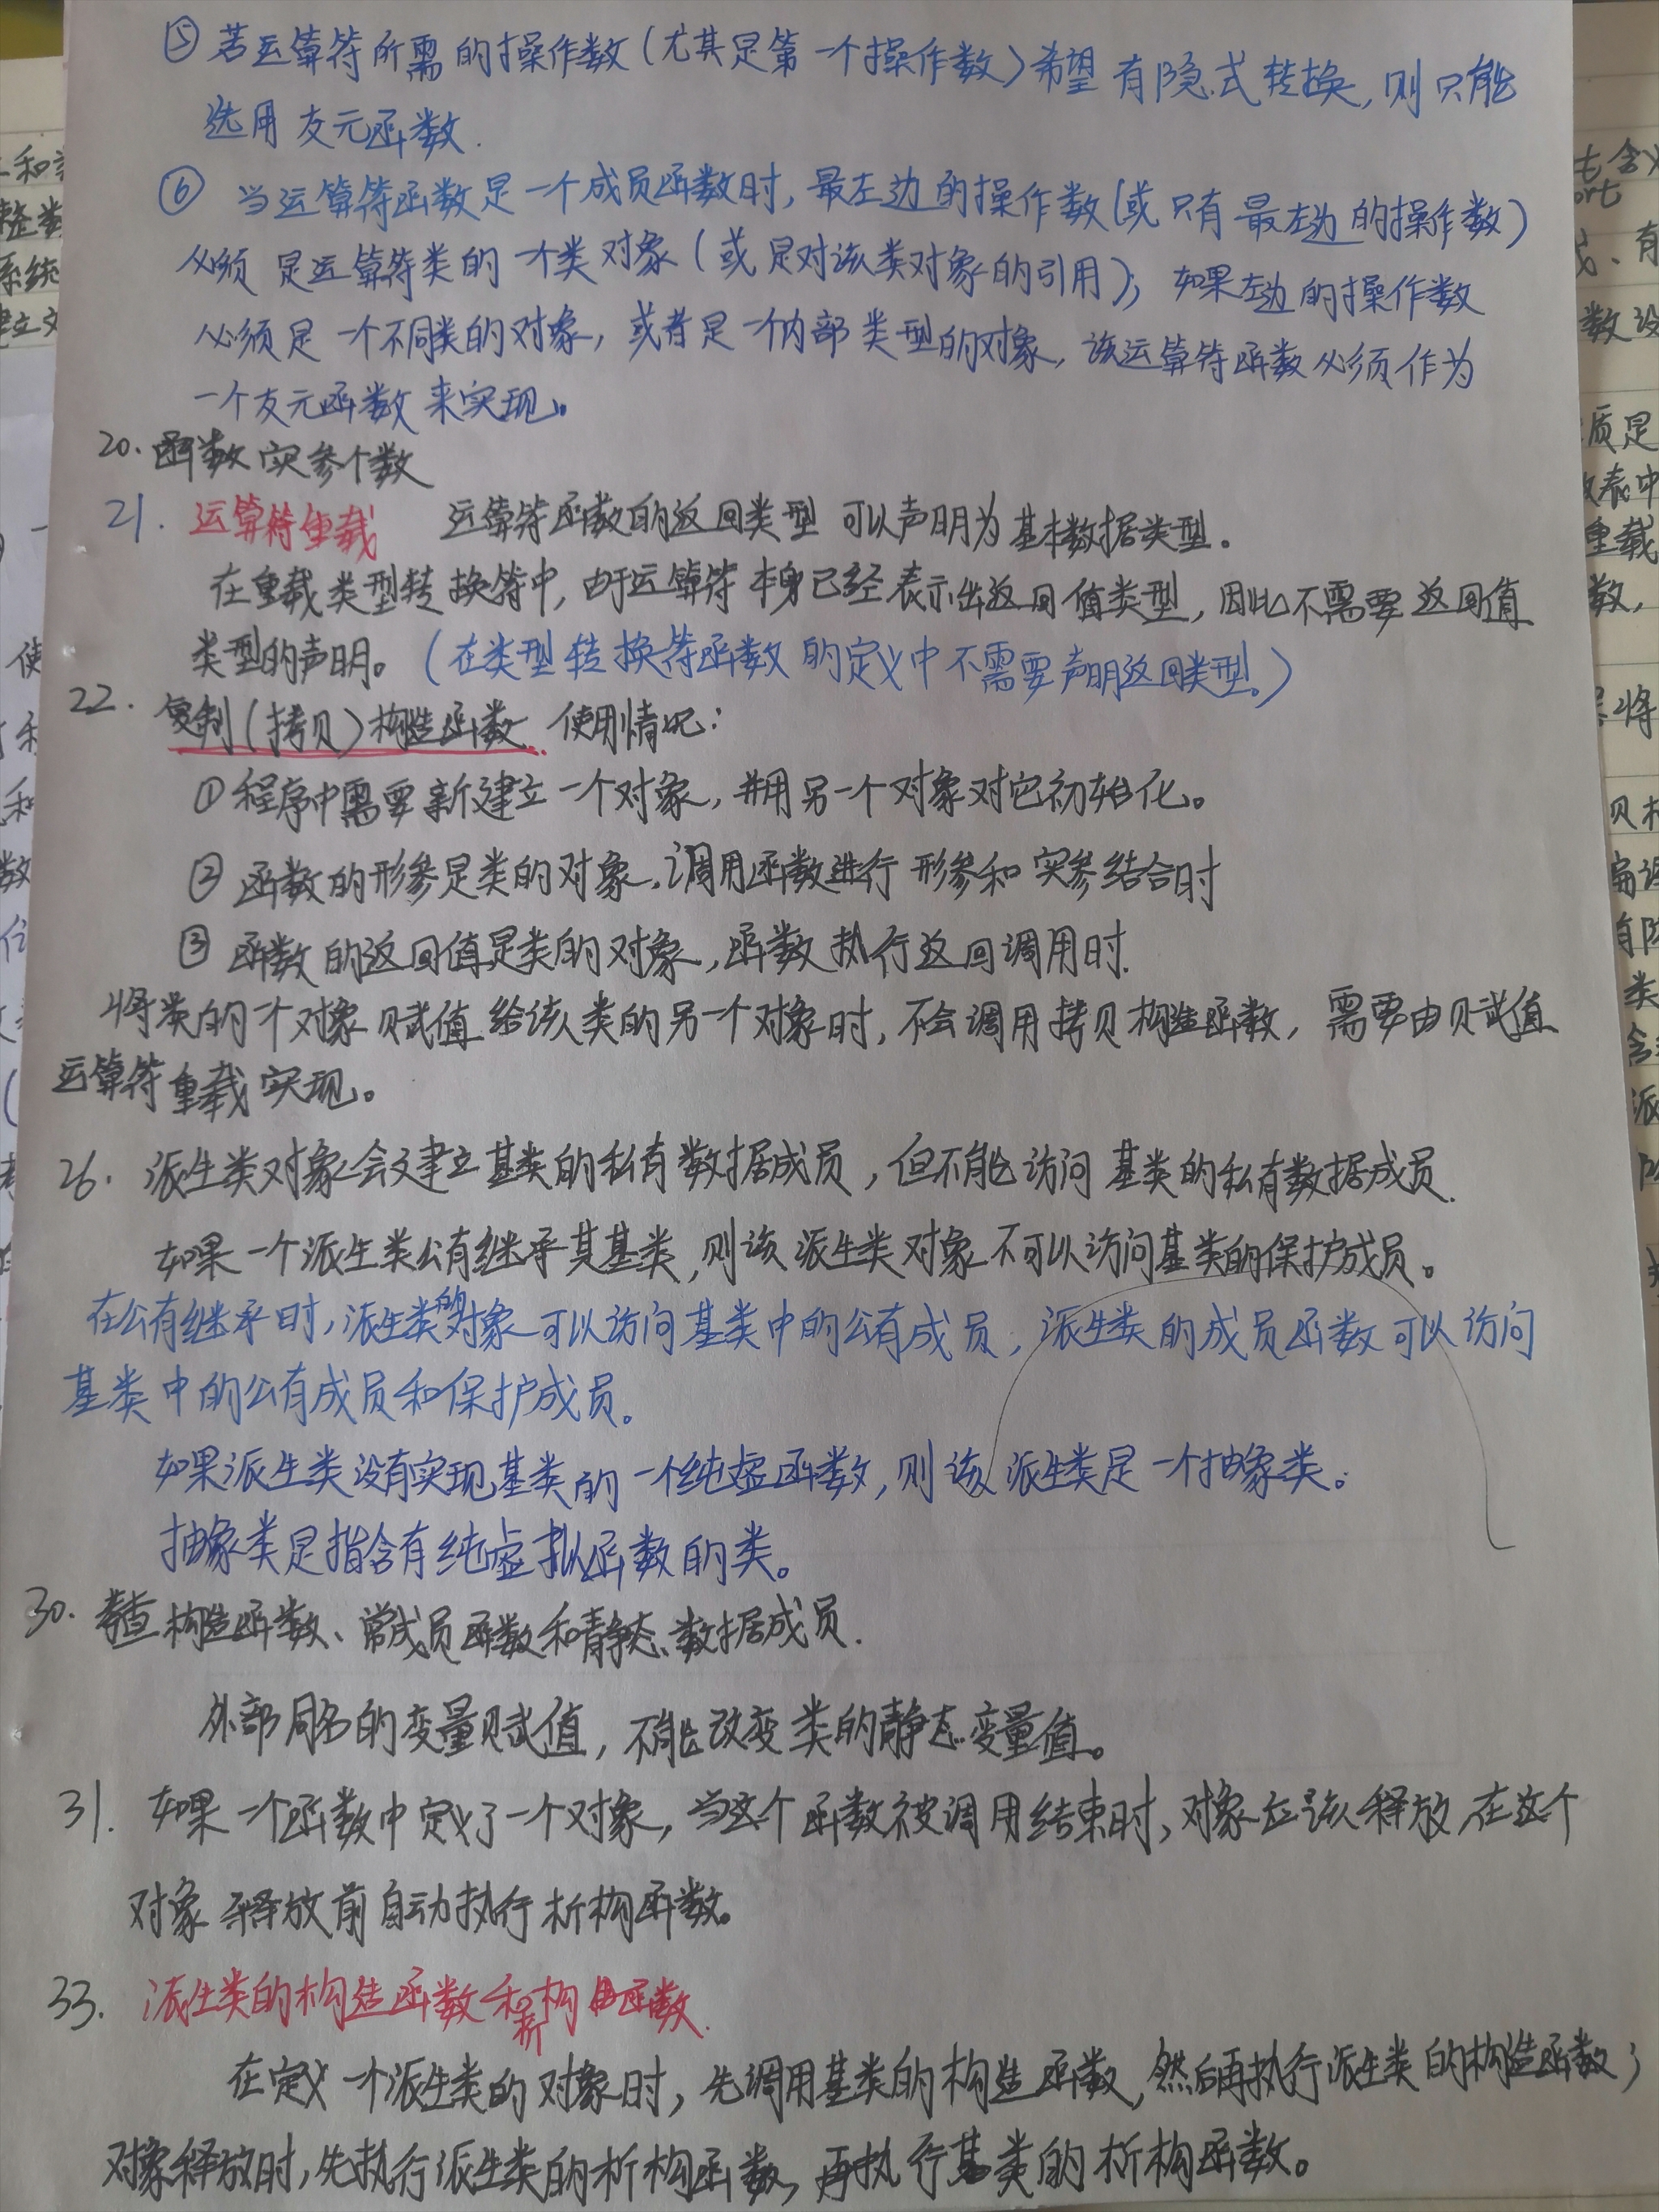 ⑤ 若运算符所需的操作数(尤其是第一个操作数)希望有隐式转换,则只能
选用友元函数.
⑥ 当运算符函数是一个成员函数时,最左边的操作数(或只有最左边的操作数)
必须是运算符类的一个类对象(或是对该类对象的引用);如果左边的操作数
必须是一个不同类的对象,或者是一个内部类型的对象,该运算符函数必须作为
一个友元函数来实现。
20. 函数实参个数
21. 运算符重载 运算符函数的返回类型可以声明为基本数据类型。
在重载类型转换符中,由于运算符本身已经表示出返回值类型,因此不需要返回值
类型的声明。(在类型转换符函数的定义中不需要声明返回类型。)
22. 复制(拷贝)构造函数. 使用情况:
①程序中需要新建立一个对象,并用另一个对象对它初始化。
② 函数的形参是类的对象,调用函数进行形参和实参结合时
③ 函数的返回值是类的对象,函数执行返回调用时.
将类的一个对象赋值给该类的另一个对象时,不会调用拷贝构造函数,需要由赋值
运算符重载实现。
26. 派生类对象会建立基类的私有数据成员,但不能访问基类的私有数据成员.
如果一个派生类公有继承其基类,则该派生类对象不可以访问基类的保护成员。
在公有继承时,派生类的对象可以访问基类中的公有成员,派生类的成员函数可以访问
基类中的公有成员和保护成员。
如果派生类没有实现基类的一个纯虚函数,则该派生类是一个抽象类。
抽象类是指含有纯虚拟函数的类。
30. 考查构造函数、常成员函数和静态数据成员.
外部同名的变量赋值,不能改变类的静态变量值。
31. 如果一个函数中定义了一个对象,当这个函数被调用结束时,对象应该释放,在这个
对象释放前自动执行析构函数。
33. 派生类的构造函数和析构函数.
在定义一个派生类的对象时,先调用基类的构造函数,然后再执行派生类的构造函数;
对象释放时,先执行派生类的析构函数,再执行基类的析构函数。